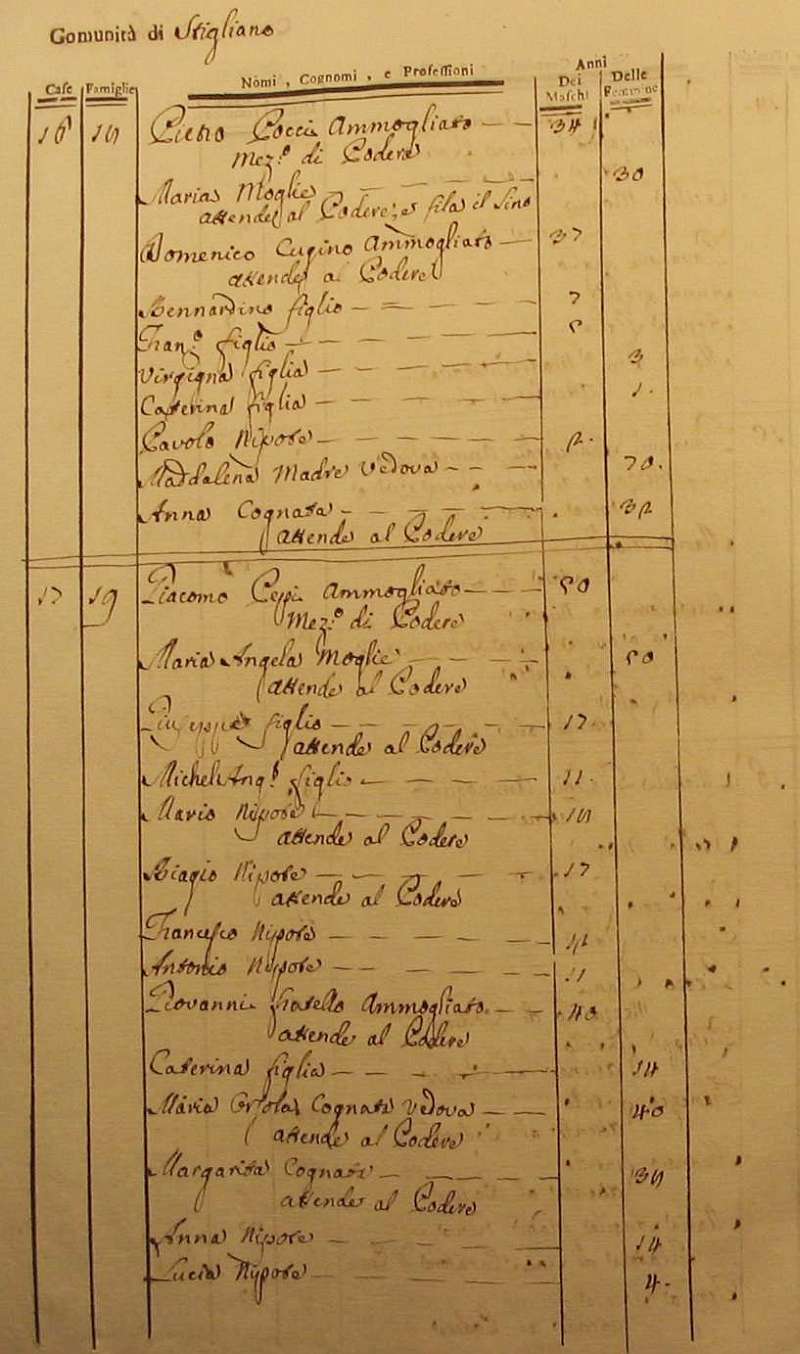 Comunità di Stigliano
Anni
Case Famiglie Nomi, Cognomi, e Professioni Dei Maschi Delle Femmine
16 Ammogliato — — 34
Mez.º di Podere
Maria Moglie — — — — 30
attende al Podere, e fila il lino
Domenico Cugino Ammogliato — 37
attende a Podere
Bennardino figlio — = — — 7
Fran.º figlio — — — —
Virgigna figlia — — — — 3
Caterina figlia — — — — 1.
Pavolo Nipote — — — — — 2.
Maddalena Madre Vedova — — — 70.
Anna Cognata — — — — 32
attende al Podere
17 19 Giacomo Ammogliato — — — 50
Mez.º di Podere
Maria Angela Moglie — — — — 50
attende al Podere
Giuseppe figlio — — — — — 17.
attende al Podere
Michel Ang.º figlio — — — — 11.
Mario Nipote — — — — —
attende al Podere
Biagio Nipote — — — — — 17
attende al Podere
Francesco Nipote — — — — —
Antonio Nipote — — — — — 11
Giovanni fratello Ammogliato. — — 40
attende al Podere
Caterina figlia — — — — 14
Maria Orsola Cognata Vedova — — 40
attende al Podere
Margarita Cognata — — — —
attende al Podere
Anna Nipote — — — — 14
Lucia Nipote — — — — 4.